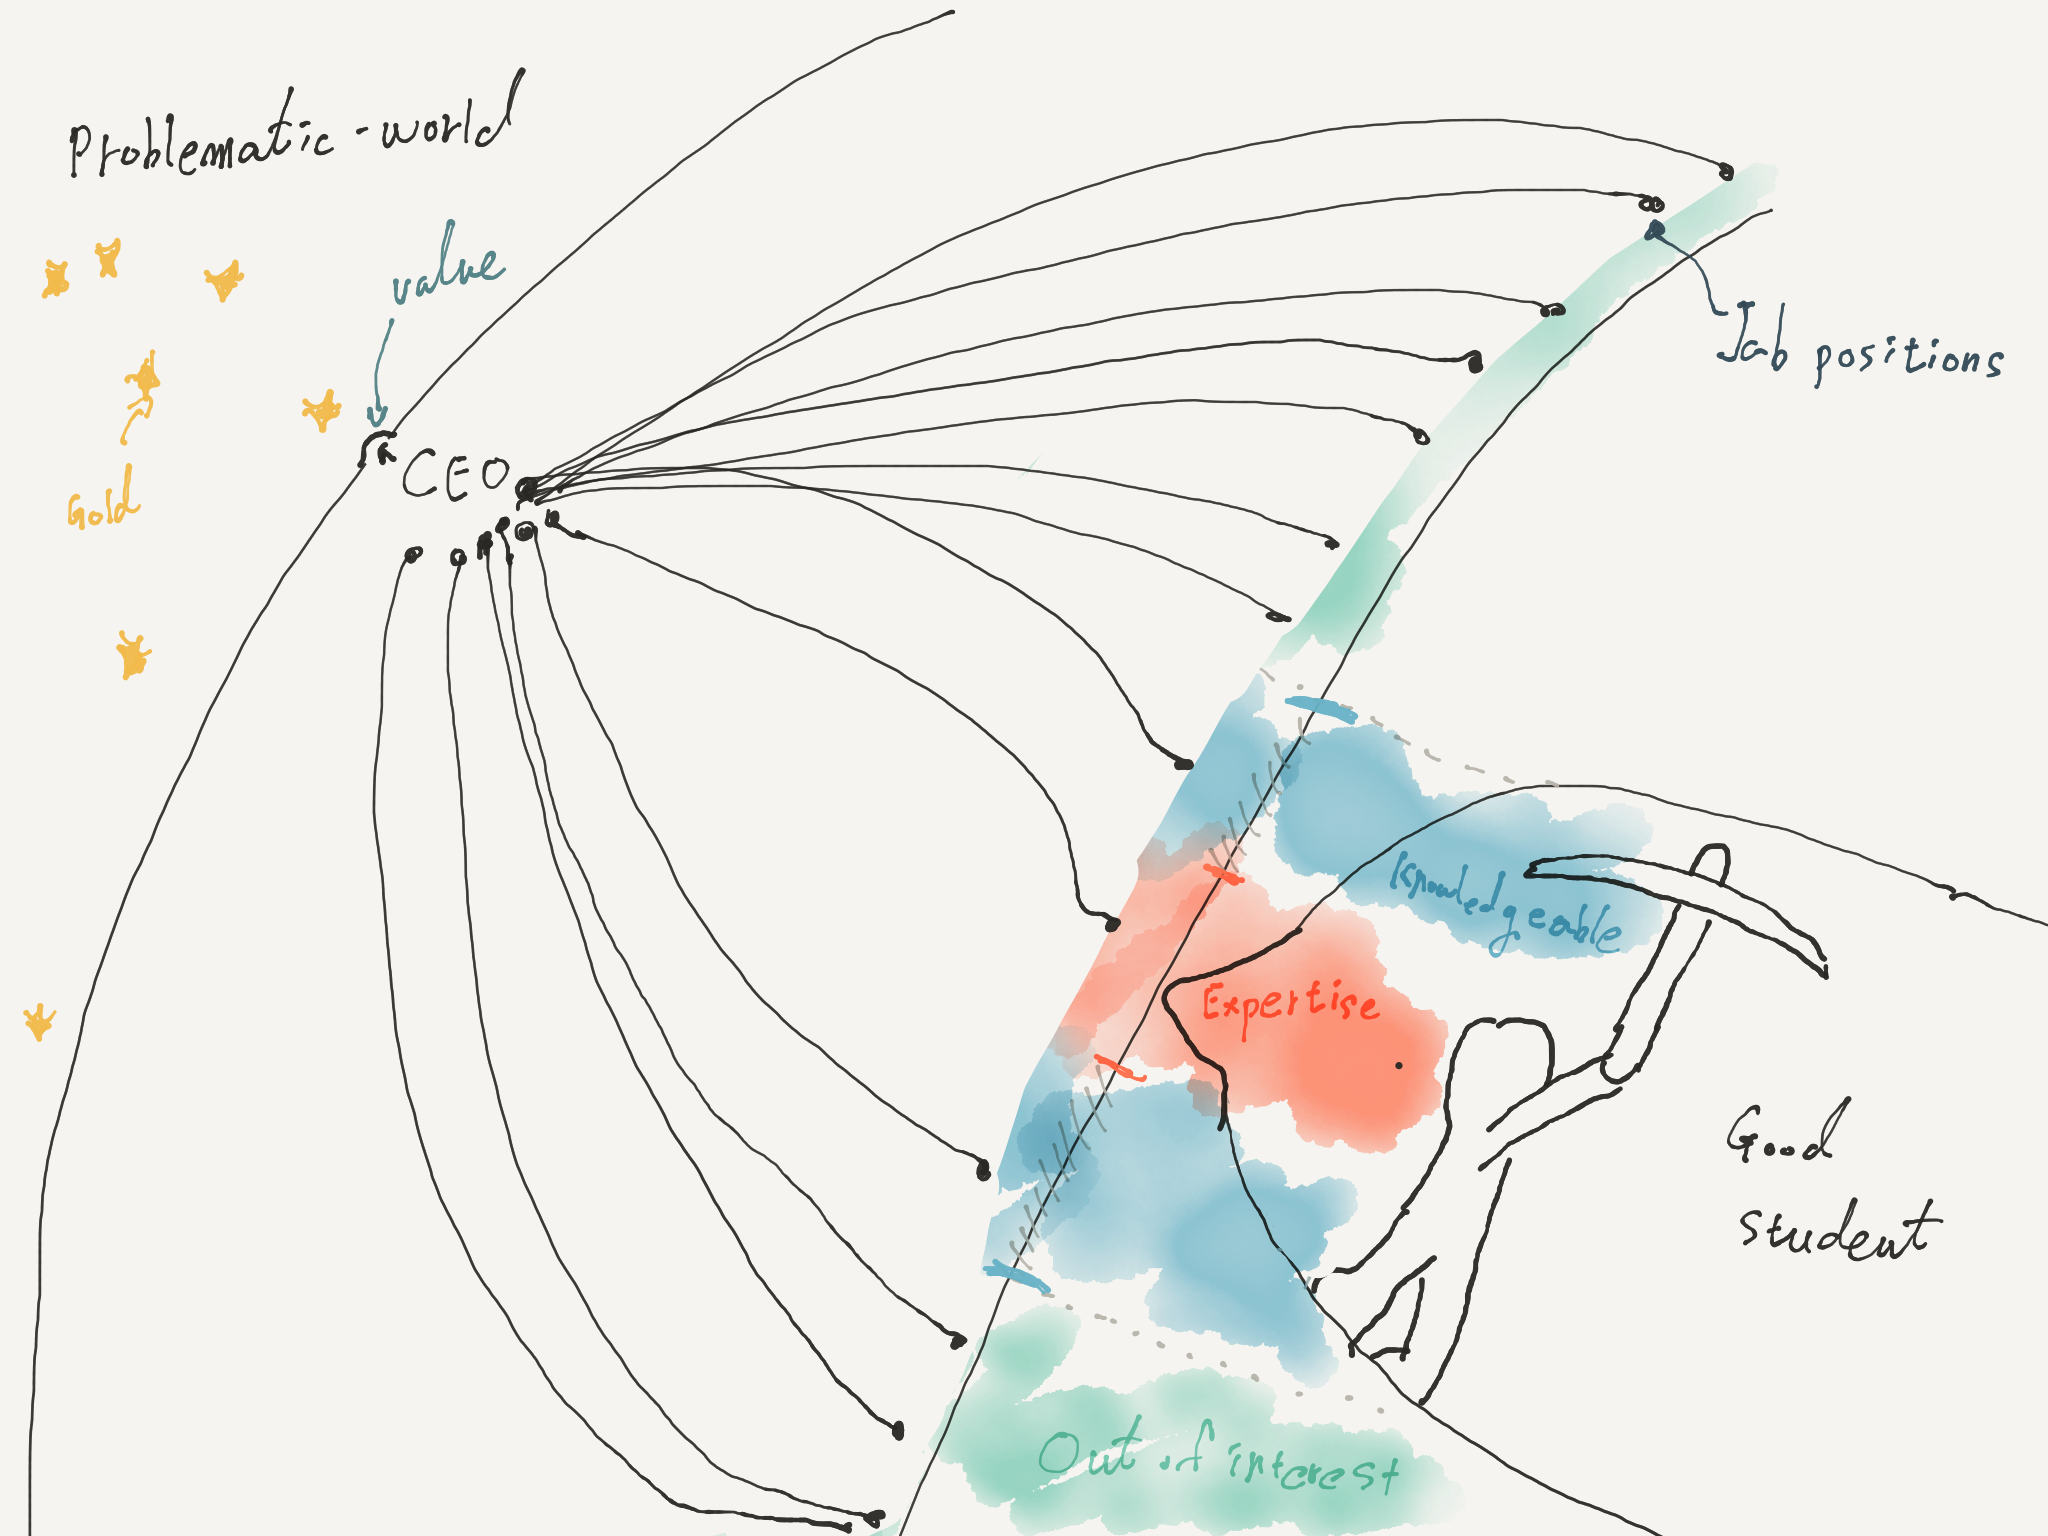 Problematic-world
value
Job positions
CEO
Gold
Knowledgeable
Expertise
Good
student
Out of interest